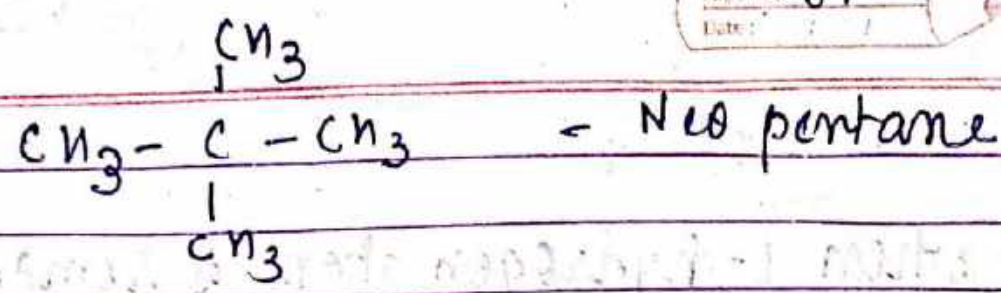 Date: / /
CH3
CH3 - C - CH3 - Neo pentane
CH3